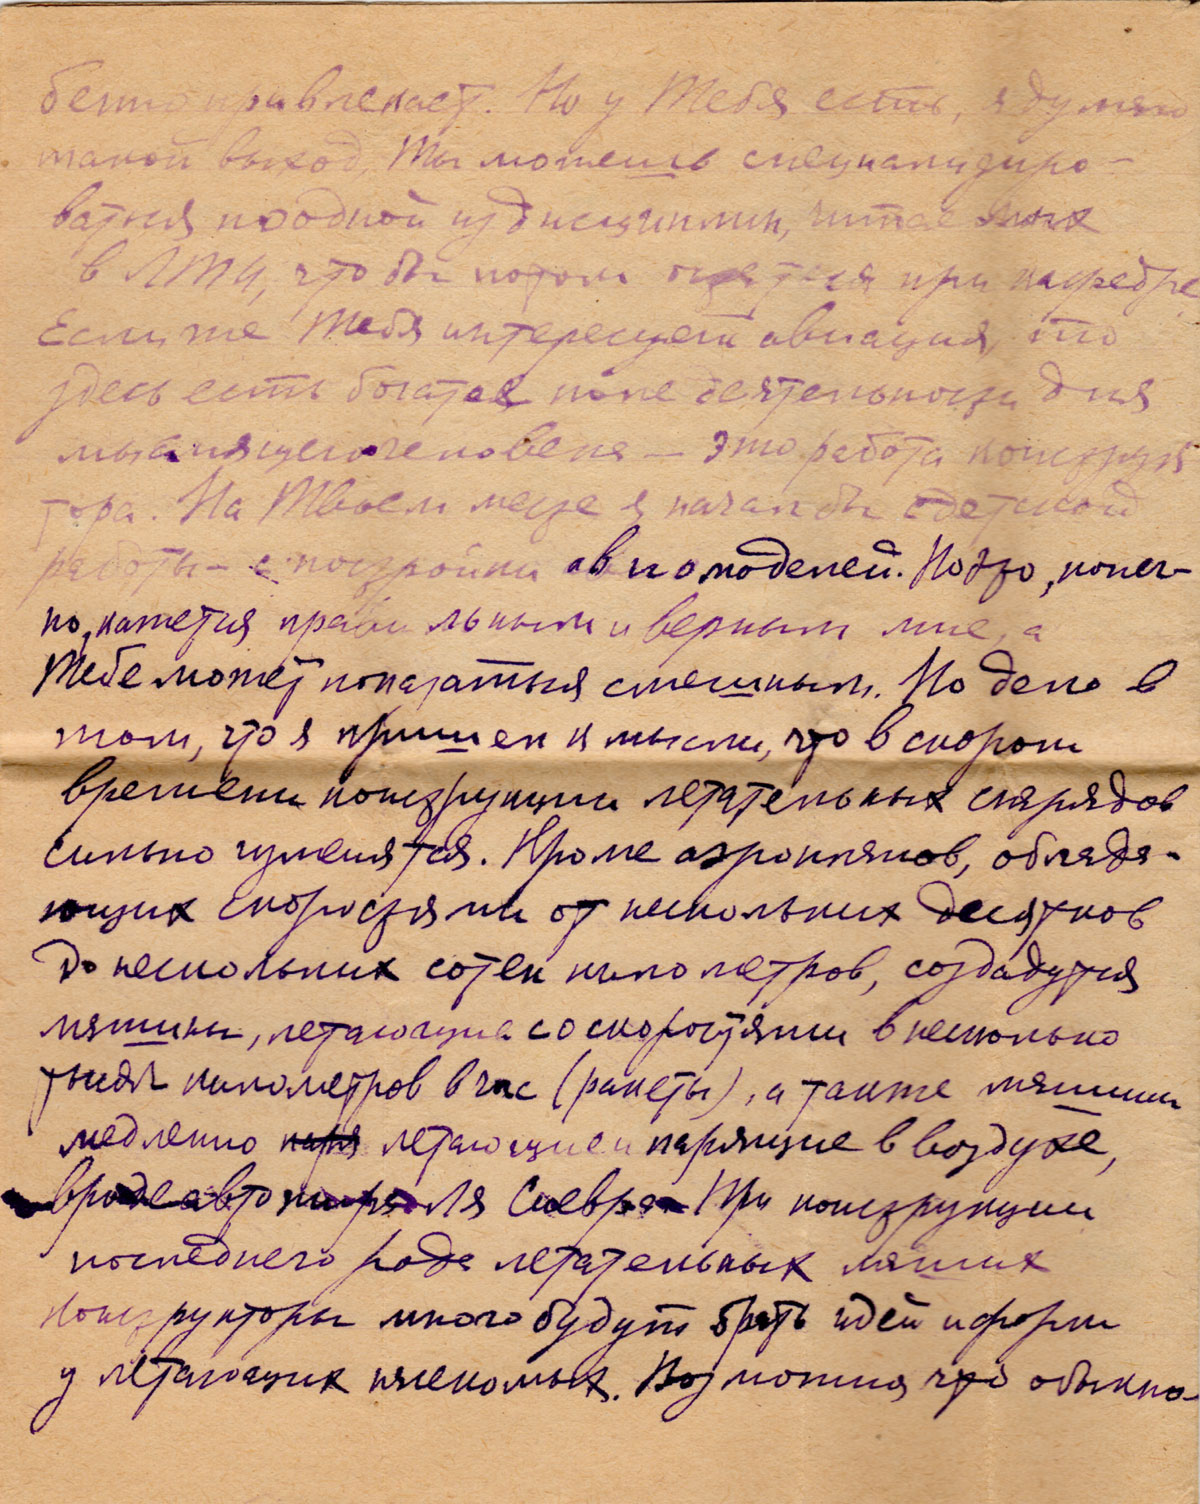 бенно привлекает. Но у Тебя есть, я думаю
такой выход. Ты можешь специализиро-
ваться по одной из дисциплин, читае мых
в ЛТИ, чтобы потом остаться при кафедре
Если же Тебя интересует авиация, то
здесь есть богатое поле деятельности для
мыслящего человека — это работа конструк
тора. На Твоем месте я начал бы с детской
работы — с постройки авиомоделей. Но это, конеч-
но, кажется правильным и верным мне, а
Тебе может показаться смешным. Но дело в
том, что я пришел к мысли, что в скором
времени конструкции летательных снарядов
сильно изменятся. Кроме аэропланов, облада-
ющих скоростями от нескольких десятков
до нескольких сотен километров, создадутся
машины, летающие со скоростями в несколько
тысяч километров в час (ракеты), а также машины
медленно летающие и парящие в воздухе,
вроде автожира Сиерва. При конструкции
последнего рода летательных машин
конструкторы много будут брать идей и форм
у летающих насекомых. Возможно что обыкно-